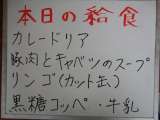 本日の給食
カレードリア
豚肉とキャベツのスープ
リンゴ(カット缶)
黒糖コッペ・牛乳